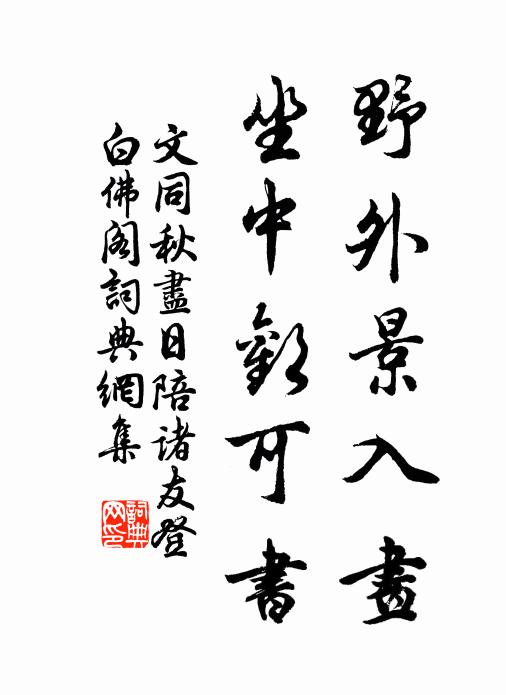 野外景入畫
坐中歡可書
文同秋盡日陪諸友登
白佛阁詞典網集
詞典网印